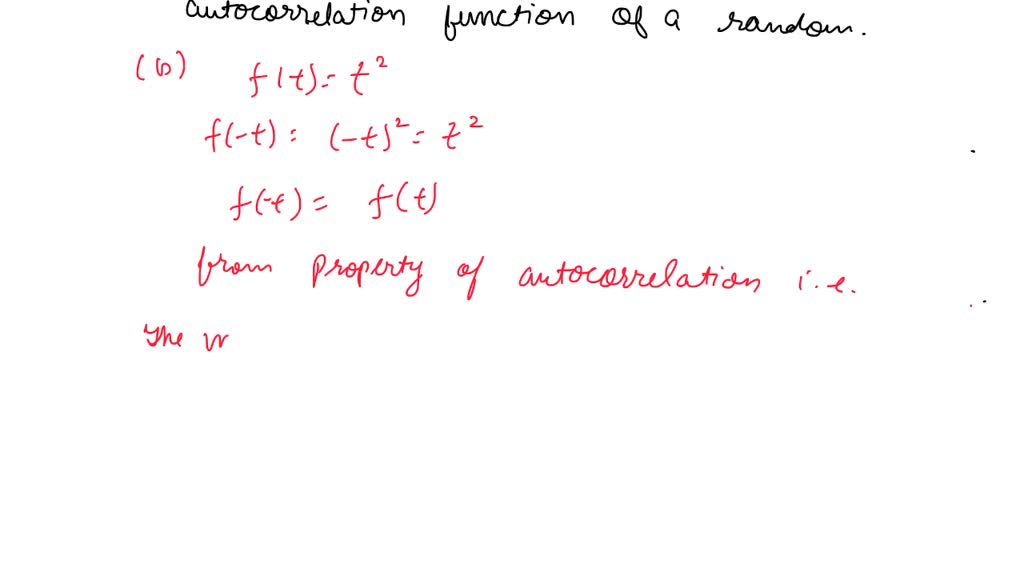 autocorrelation function of a random.
(b) f(t) = t²
f(-t) = (-t)² = t²
f(-t) = f(t)
from property of autocorrelation i.e.
The